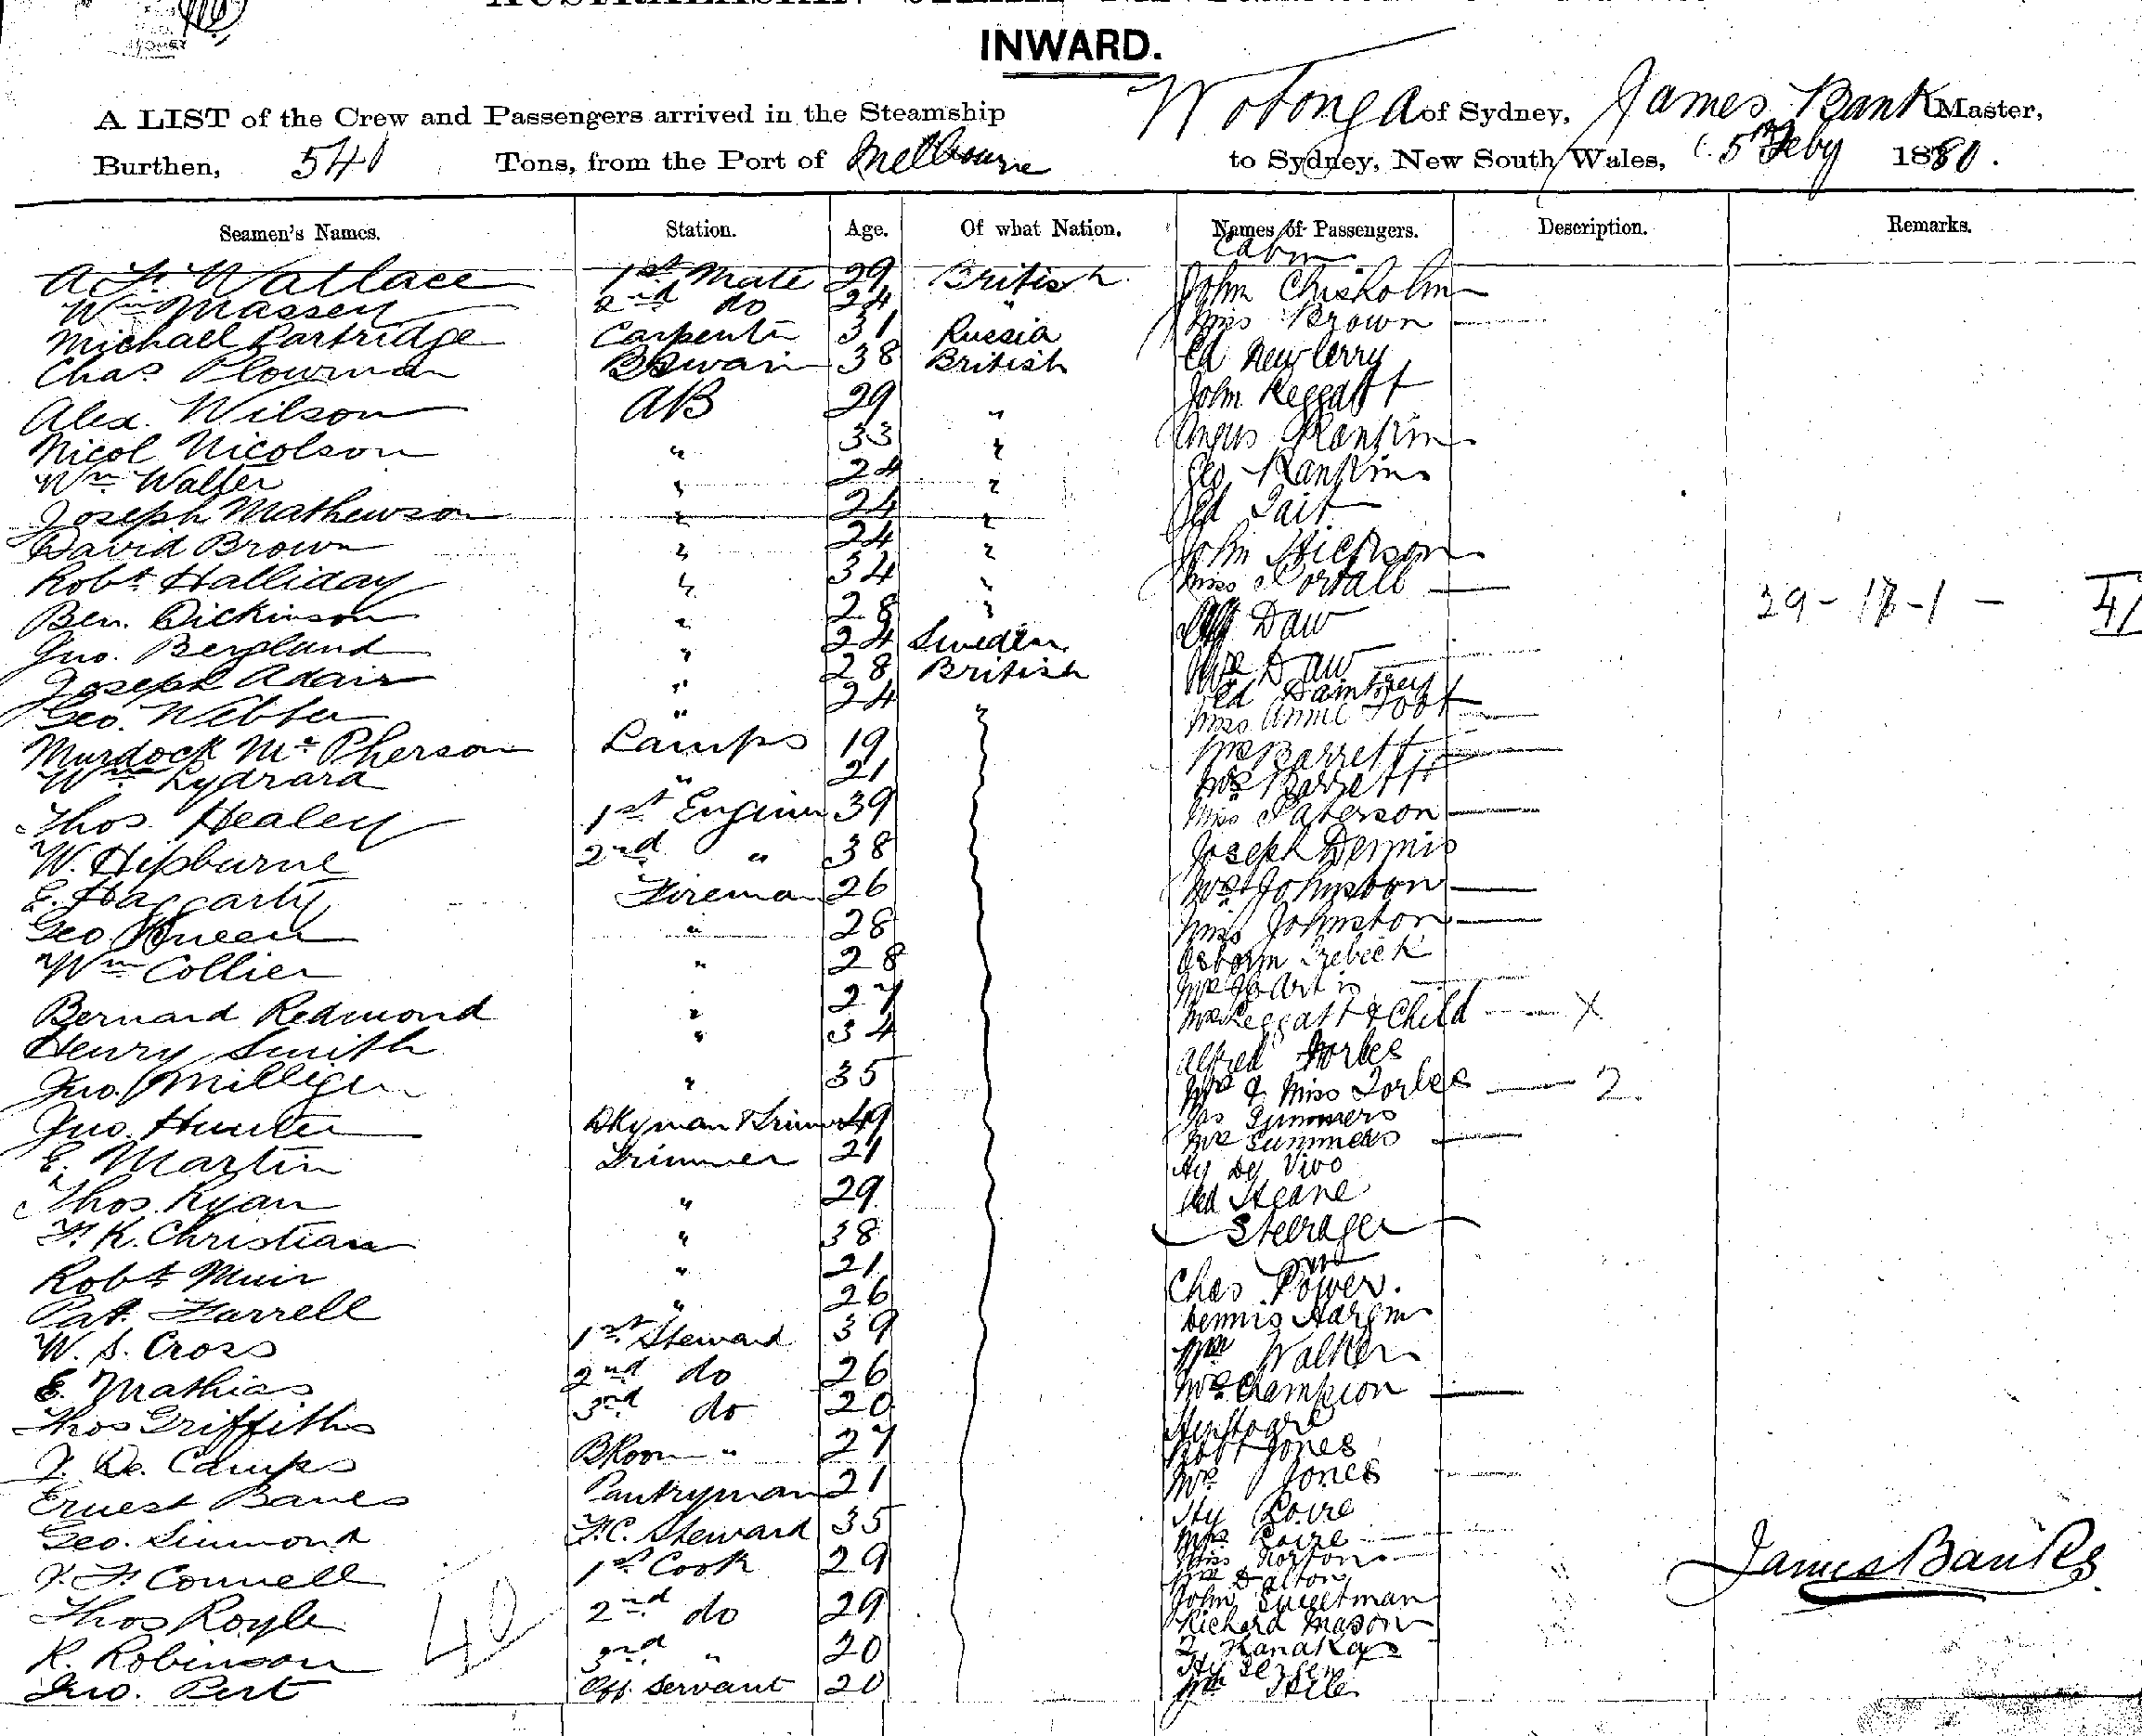 INWARD.
A LIST of the Crew and Passengers arrived in the Steamship Wotonga of Sydney, James Banks Master,
Burthen, 541 Tons, from the Port of Melbourne to Sydney, New South Wales, 5th Feby 1880.
Seamen's Names. Station. Age. Of what Nation. Names of Passengers. Description. Remarks.
Cabin
A. F. Wallace 1st Mate 29 British John Chisholm
Wm Massey 2nd do 24 " Miss Brown
Michael Partridge Carpenter 31 Russia Ed Newberry
Chas. Plowman BSwain 38 British John Reggatt
Alex. Wilson AB 29 " Angus Rankin
Nicol Nicolson " 33 " Geo Rankin
Wm Walter " 24 " Ed Tait
Joseph Mathewson " 24 " John Hickson
David Brown " 24 " Miss
Robt Halliday " 34 " Daw
Ben. Dickinson " 28 " Mrs Daw
29-18-1-
Jno. Berglund " 24 Sweden Ed
Joseph Adair " 28 British Miss Annie Foot
Geo. Webber " 24 " Mr Barrett
Murdock McPherson Lamps 19 Mrs Barrett
Wm Lydrara " 21 Miss Paterson
Thos. Healey 1st Enginer 39 Joseph Dennis
W. Hepburne 2nd " 38 Mrs Johnston
E. Haggarty Fireman 26 Miss Johnston
Geo Queen " 28 Osborn Trebeck
Wm Collier " 28 Mrs Martin
Bernard Redmond " 27 Mrs Reggatt & Child X
Henry Smith " 34 Alfred Forbes
Jno. Milligen " 35 Mrs & Miss Forbes 2
Jno. Hunter Dkyman & Trimer 49 Jas Summers
E. Martin Trimmer 21 Mrs Summers
Thos. Ryan " 29 Hy De Vivo
F. K. Christian " 38 Keane
Robt Muir " 21 Steerage
Pat. Farrell " 26 Chas Power.
W. S. Cross 1st Steward 39 Dennis
E. Mathias 2nd do 26 Wm Walker
Thos Griffiths 3rd do 20 Mrs Champion
De Camps BRoom " 27 Robt Jones
Ernest Banes Pantryman 21 Mrs Jones
Geo. Simmons F.C. Steward 35 Hy
Connell 1st Cook 29 Miss Norton
Mrs Dalton
James Banks
Thos Royle 2nd do 29 John Sweetman
Richard Mason
R. Robinson 3rd " 20 2 Kanakas
40
Jno. Pert Off. Servant 20 Wm